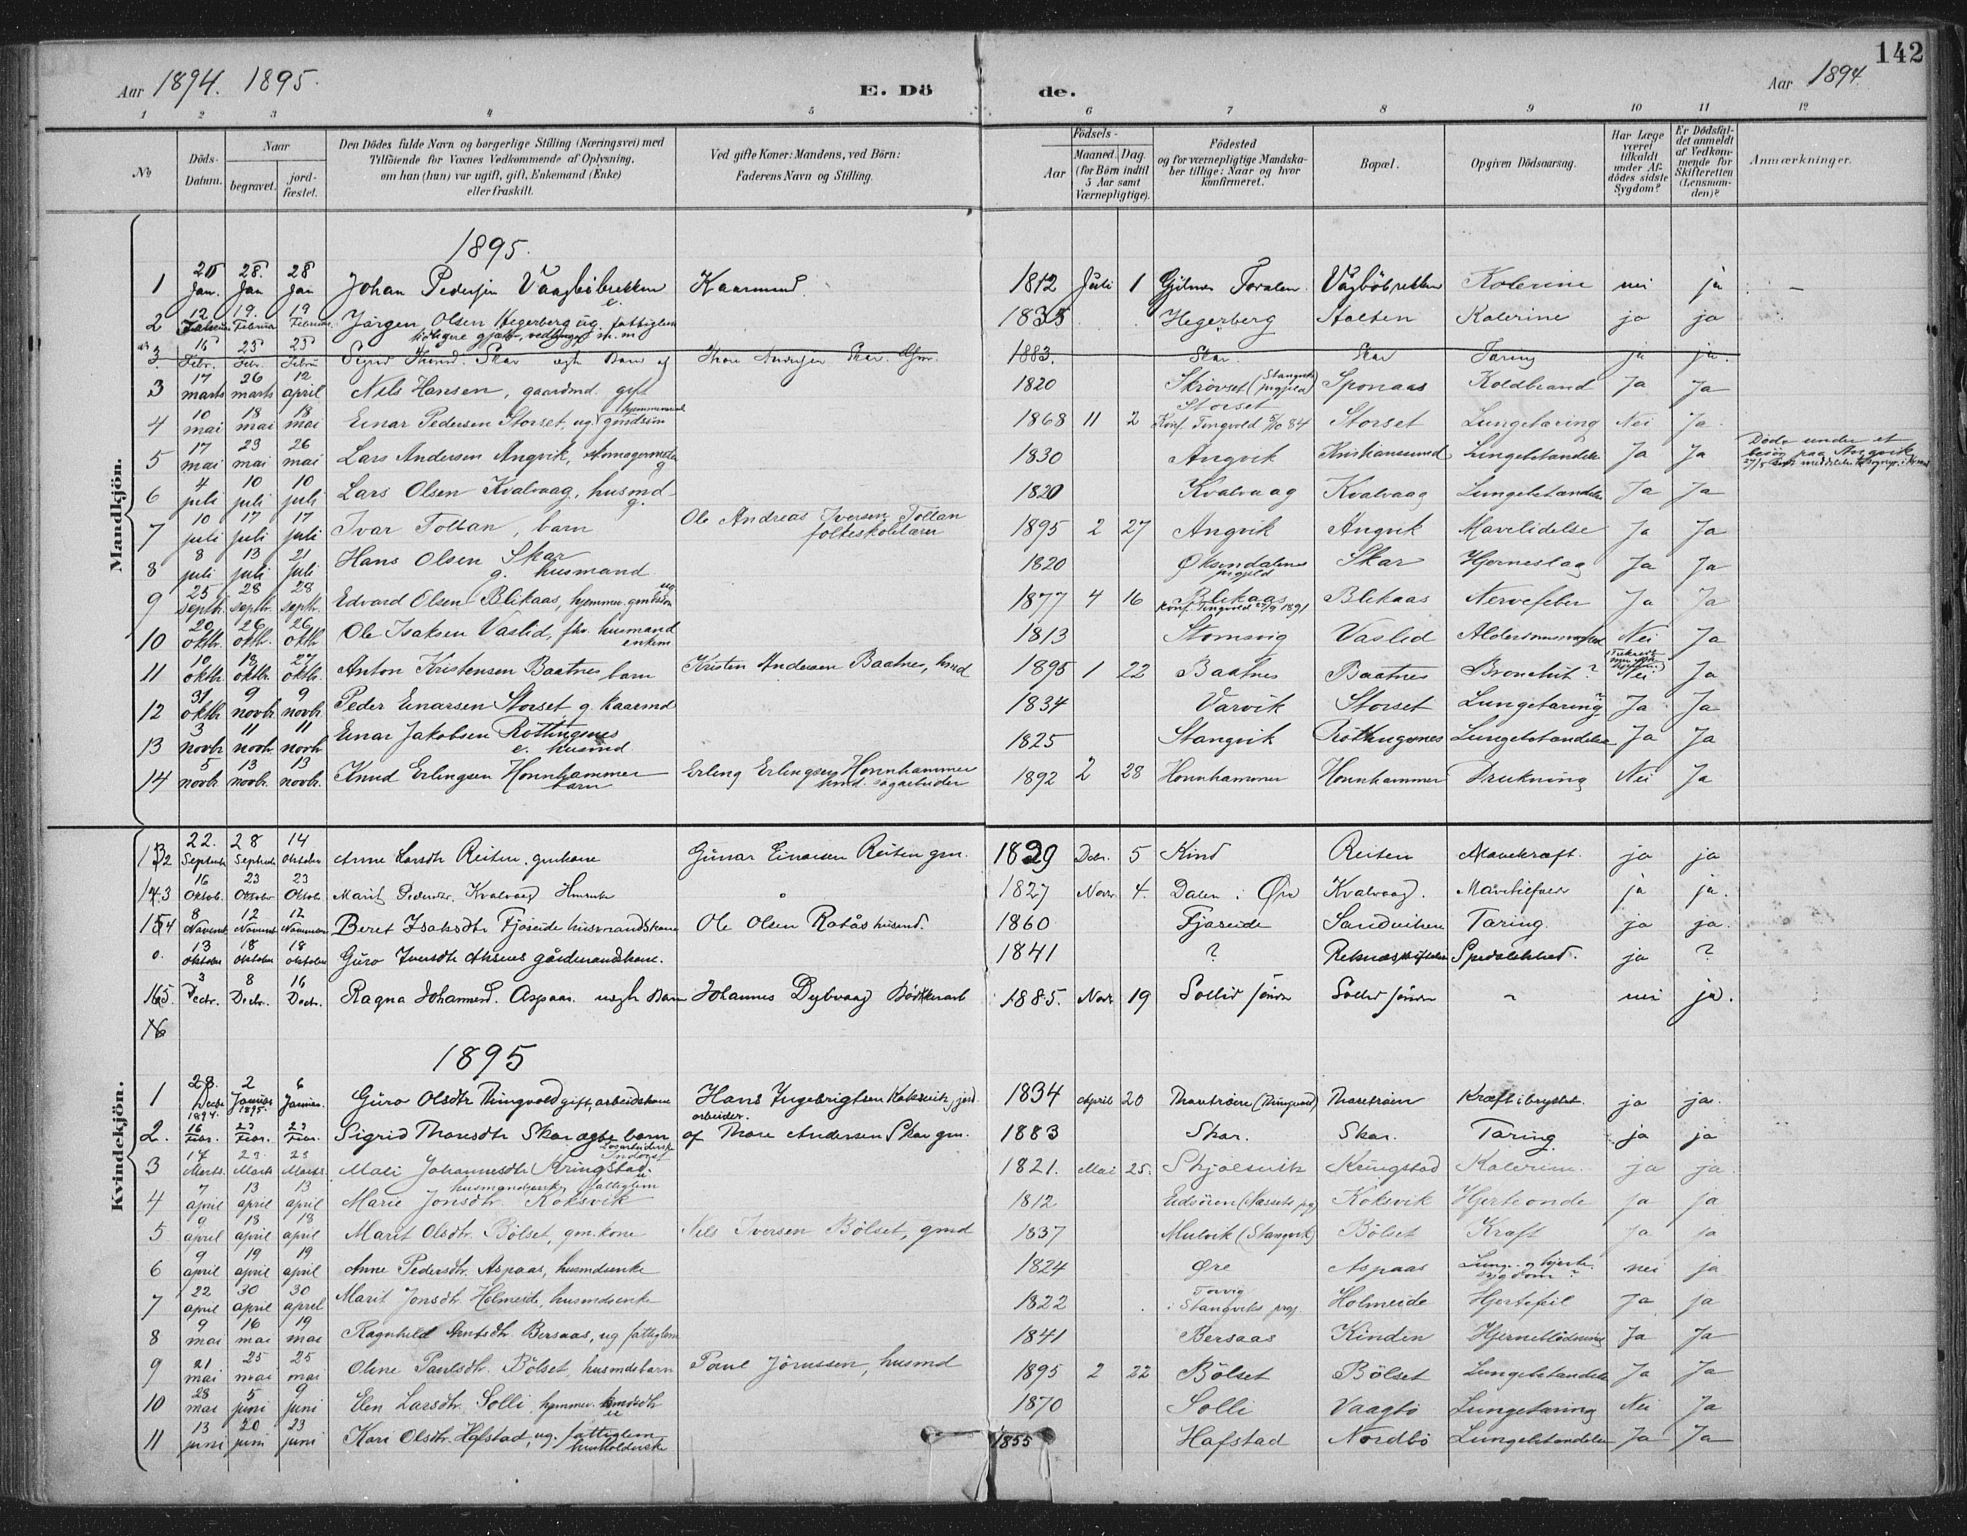 142
Aar 1894. 1895.
E. Dö de.
Aar 1894
1 2 3 4 5 6 7 8 9 10 11 12
No
Döds-Datum.
Naar
begravet.
jord-fæstet.
Den Dödes fulde Navn og borgerlige Stilling (Næringsvei) med
Tilföiende for Voxnes Vedkommende af Oplysning,
om han (hun) var ugift, gift, Enkemand (Enke)
eller fraskilt.
Ved gifte Koner: Mandens, ved Börn:
Faderens Navn og Stilling.
Födsels-
Aar
Maaned. Dag.
(for Börn indtil
5 Aar samt
Værnepligtige).
Födested
og for værnepligtige Mandska-
ber tillige: Naar og hvor
konfirmeret.
Bopæl.
Opgiven Dödsaarsag.
Har Læge
været
tilkaldt
under Af-
dödes sidste
Sygdom?
Er Dödsfal-
det anmeldt
af Vedkom-
mende for
Skifteretten
(Lensman-
den)?
Anmærkninger.
Mandkjön.
1895.
1 Jan. 28. Jan 28 Jan Johan Pedersen Vaagböbrekken e. Kaarmand. 1812 Juli 1 Vågböbrekken Kolerine nei ja
2 12 19. Februar 19 Februar Jörgen Olsen Hegerberg ug. fattiglem 1835 Hegerberg Stolten Kolerine ja ja
3. 15 Febr. 25 Febr. 25 Febru Sigrid Skar ægte Barn af Thore Andersen Skar. 1883. Skar. Skar Tæring ja ja.
3 17 marts 26 marts 12 april Nils Hansen, gaardmd. gift 1820 Skrövset (Stangviks prgjeld) Sponaas Koldbrand Ja Ja
4 10 mai 18 mai 18 mai Einar Pedersen Storset, ug. hjemmevrd. gmdsön 1868 11 2 Storset Konf. Tingvold 5/10 84 Storset Lungetæring Nei Ja
5 17 mai 23 mai 26 mai Lars Andersen Angvik, g 1830 Angvik Kristiansund Lungebetændelse Ja Ja Döde under et besög paa Angvik
6 4 juli 10 juli 10 juli Lars Olsen Kvalvaag, husmd. g. 1820 Kvalvaag Kvalvaag Lungebetændelse Ja Ja
7 10 juli 17 juli 17 juli Ivar Toltan, barn Ole Andreas Iversen Toltan folkeskolelærer 1895 2 27 Angvik Angvik Mavelidelse Ja Ja
8 8 juli 13 juli 21 juli Hans Olsen Skar g. husmand 1820 Öksendalens prgjeld Skar Hjerneslag Ja Ja
9 25 septbr. 28 septbr. 28 septbr. Edvard Olsen Blikaas, hjemmev. gmdssön ug 1877 4 16 Blikaas Konf. Tingvold 27/9 1891 Blikaas Nervefeber Ja Ja
10 20 oktbr. 26 oktbr. 26 oktbr Ole Isaksen Vaslid, fhv. husmand enkem 1813 Stomsvig Vaslid Nei Ja
11 10 oktbr 19 oktbr. 27 oktbr. Anton Kristensen Baatnes barn Kristen Andersen Baatnes, hmd 1895 1 22 Baatnes Baatnes Bronchit? Nei Ja
12 31 oktbr 9 novbr 9 novbr Peder Einarsen Storset g. kaarmd 1834 Varvik Storset Lungetæring? Ja Ja
13 3 novbr 11 novbr 11 novbr Einar Jakobsen Röttingsnes e. husmd. 1825 Stangvik Röttingsnes Lungebetændelse Ja Ja
14 5 novbr. 13 novbr. 13 novbr. Knud Erlingsen Honnhammer barn Erling Erlingsen Honnhammer hmd. sagarbeider 1892 2 28 Honnhammer Honnhammer Drukning Nei Ja
Kvindekjön.
12 22. Septemb 28 Septemb 14 Oktober Anne Larsdtr Reiten, gmkone Gunar Einarsen Reiten gm. 1829 Decbr. 5 Kind Reiten Mavekræft. ja ja
13 16 Oktob. 23 Oktobr 23 Oktob. Marit Pedersdtr. Kvalvaag 1827 Novr. 4. Dalen i Öre Kvalvaag. ja ja.
14 8 Novemb 12 Novemb 12 November Beret Isaksdtr Fjöseide husmandskone Ole Olsen Rotås husmd. 1860 Fjöseide Sandviken Tæring. ja ja.
0. 13 oktober 18 oktober 18 oktober Guro Iversdtr gårdmandskone. 1841 ? Reknæs Spedalskhed. ja ?
15. 3 Decbr. 8 Decbr. 16 Decbr. Ragna Johannesd. Aspaas uægte Barn Johannes Dybvaag Bödkerarb 1885. Novr 19 Sollid söndre Sollid söndre nei ja.
16
1895
1 28. Decbr 1894. 2 Januar 1895. 6 Januar. Guro Olsdtr Thingvold gift, arbeidskone Hans Ingebrigtsen Koksvik, jord arbeider. 1834 April 20 (Thingvold) Kræft i brystet. ja ja.
2. 16 Febr. 23 Febr. 23 Febr. Sigrid Thoresdtr Skar ægte barn af Thore Andersen Skar gm. 1883 Skar. Skar. Tæring. ja ja
3 14 Marts 23 Marts 23 Marts Mali Johannesdtr Kringstad. 1821. Mai 25. Skjölsvik Kringstad Kolerine. ja ja.
4 7 april 13 april 13 april Marie Jonsdtr. Koksvik husmandsenke, fattiglem 1812 Eidsören (Nessets prg) Koksvik Hjerteonde ja ja
5 9 april 18 april 18 april Marit Olsdtr. Bölset, gm.kone Nils Iversen Bölset, gmd 1837 Mulvik (Stangvik) Bölset Kræft Ja ja
6 9 april 19 april 19 april Anne Pedersdtr. Aspaas, husmdsenke 1824 Öre Aspaas Lunge- og hjertesygdom? nei ja
7 22 april 30 april 30 april Marit Jonsdtr. Holmeide, husmdsenke 1822 Torvig i Stangviks prgj. Holmeide Hjertefeil Ja ja
8 9 mai 16 mai 19 mai Ragnhild Arntsdtr. Bersaas, ug fattiglem 1841 Bersaas Kinden Hjerneblödning Ja Ja
9 21. mai 25 mai 25 mai Oline Paulsdtr. Bölset, husmdsbarn Paul Jörussen, husmd 1895 2 22 Bölset Bölset Lungebetændelse Ja Ja
10 28 mai 5 juni 9 juni Elen Larsdtr. Solli, hjemmev. hmdsdtr 1870 Solli Vaagbö Lungetæring Nei Ja
11 13 juni 20 juni 23 juni Kari Olsdtr. Hafstad, ug. fattiglem husholderske 1855 Hafstad Nordbö Lungebetændelse Ja Ja